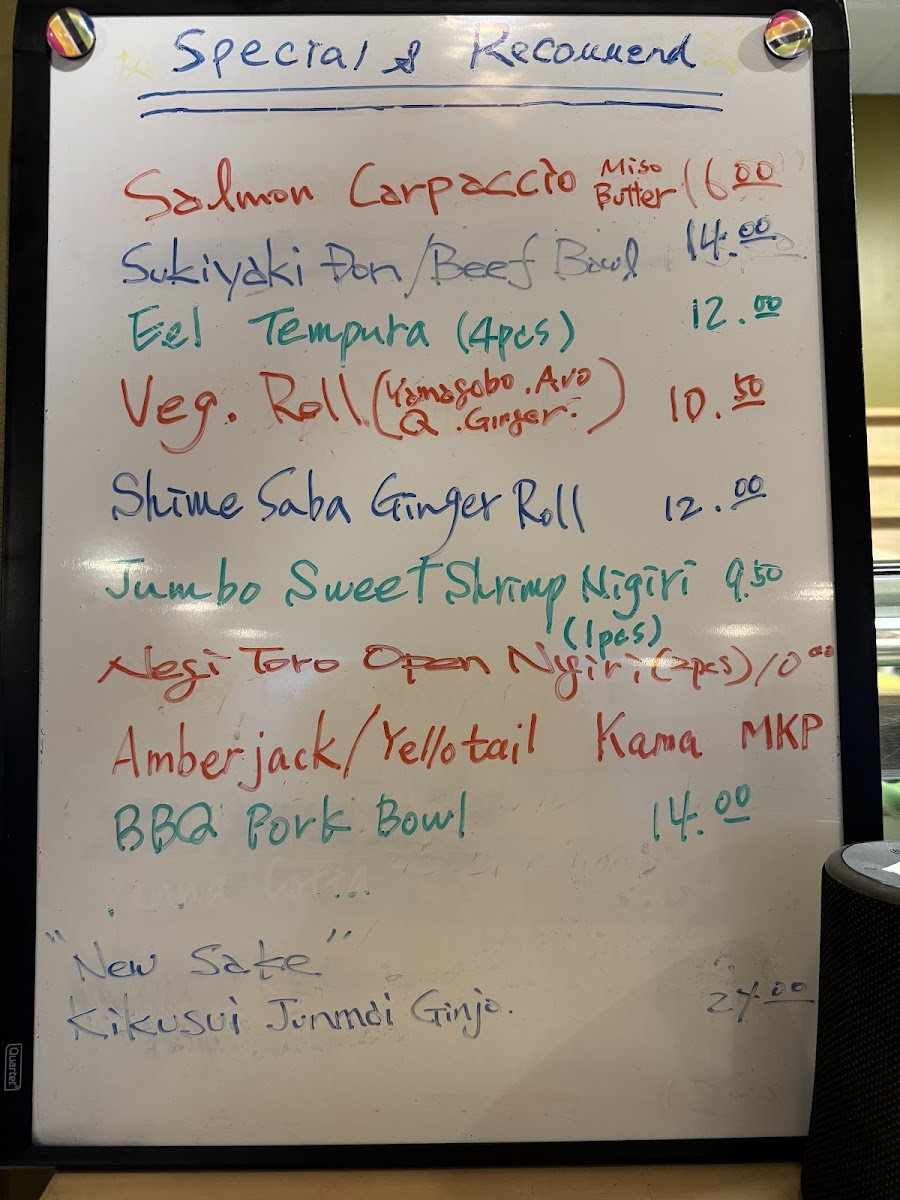 Special & Recommend
Salmon Carpaccio Miso Butter 16.00
Sukiyaki Don/Beef Bowl 14.00
Eel Tempura (4pcs) 12.00
Veg. Roll (Yamagobo. Avo Q. Ginger.) 10.50
Shime Saba Ginger Roll 12.00
Jumbo Sweet Shrimp Nigiri 9.50
(1pcs)
Negi Toro Open Nigiri (2pcs) 10.00
Amberjack/Yellotail Kama MKP
BBQ Pork Bowl 14.00
"New Sake"
Kikusui Junmai Ginjo. 24.00
Quartet